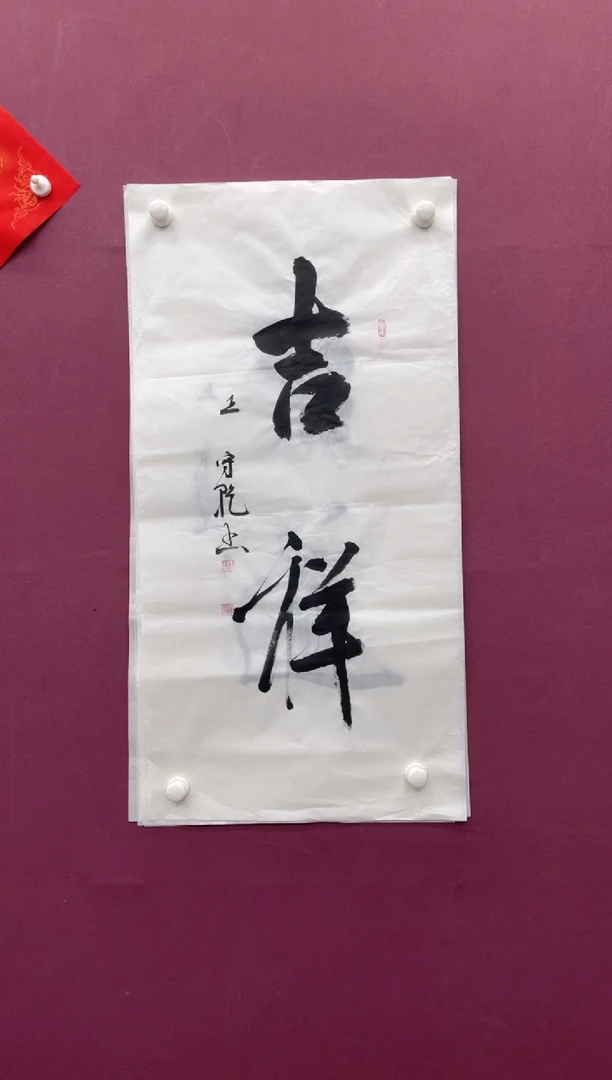 吉祥
王守乾书